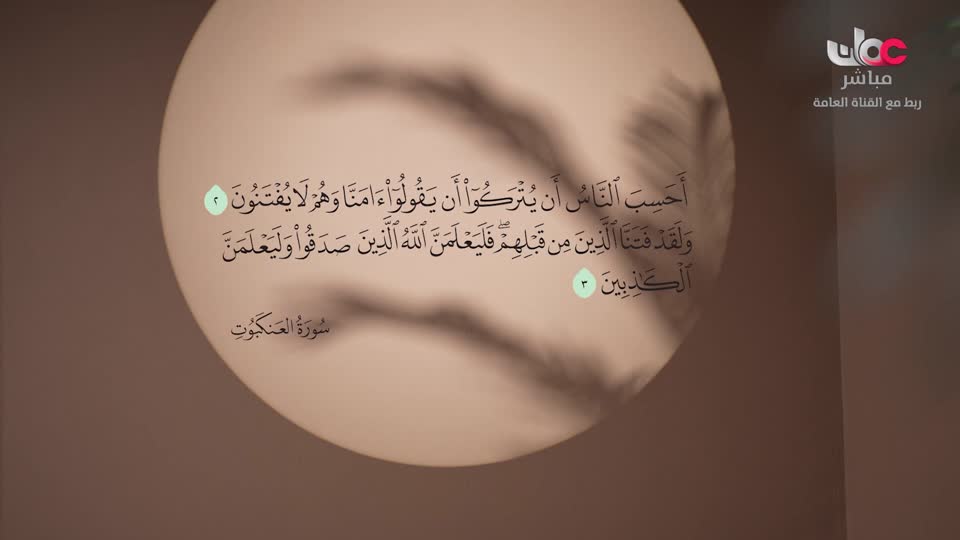 عمان
مباشر
ربط مع القناة العامة
أَحَسِبَ ٱلنَّاسُ أَن يُتْرَكُوٓا۟ أَن يَقُولُوٓا۟ ءَامَنَّا وَهُمْ لَا يُفْتَنُونَ ٢
وَلَقَدْ فَتَنَّا ٱلَّذِينَ مِن قَبْلِهِمْ ۖ فَلَيَعْلَمَنَّ ٱللَّهُ ٱلَّذِينَ صَدَقُوا۟ وَلَيَعْلَمَنَّ
ٱلْكَٰذِبِينَ ٣
سُورَةُ العَنكَبُوتِ